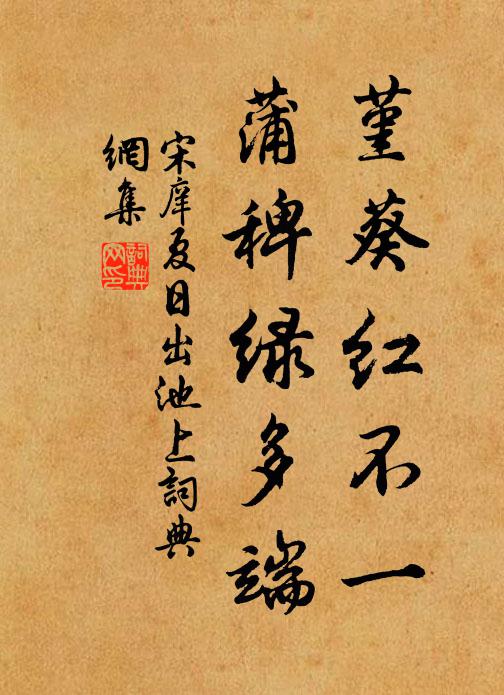 堇葵紅不一
蒲稗緑多端
宋庠夏日出池上詞典
網集
詞典
网印